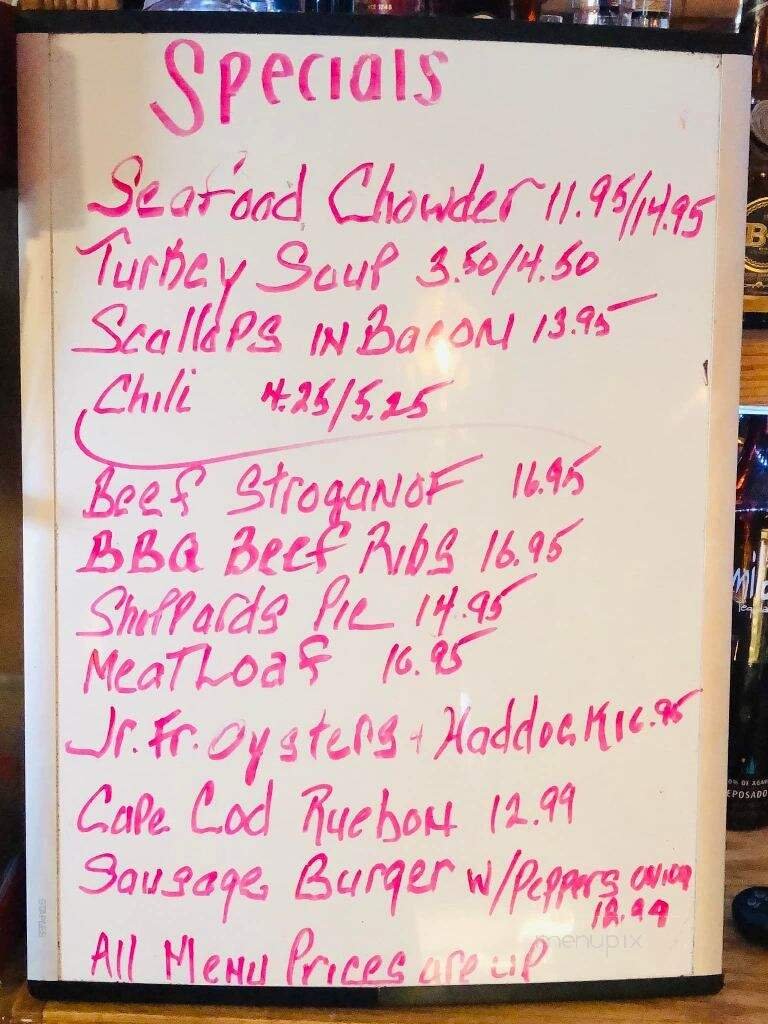 Specials
Seafood Chowder 11.95/14.95
Turkey Soup 3.50/4.50
Scallops in Bacon 13.95
Chili 4.25/5.25
Beef Stroganof 16.95
BBQ Beef Ribs 16.95
Sheppards Pie 14.95
Meatloaf 16.95
Jr. Fr. Oysters + Haddock 16.95
Cape Cod Ruebon 12.99
Sausage Burger w/Peppers onion
12.99
All Menu Prices are up
menupix
STAPLES
EPOSADO